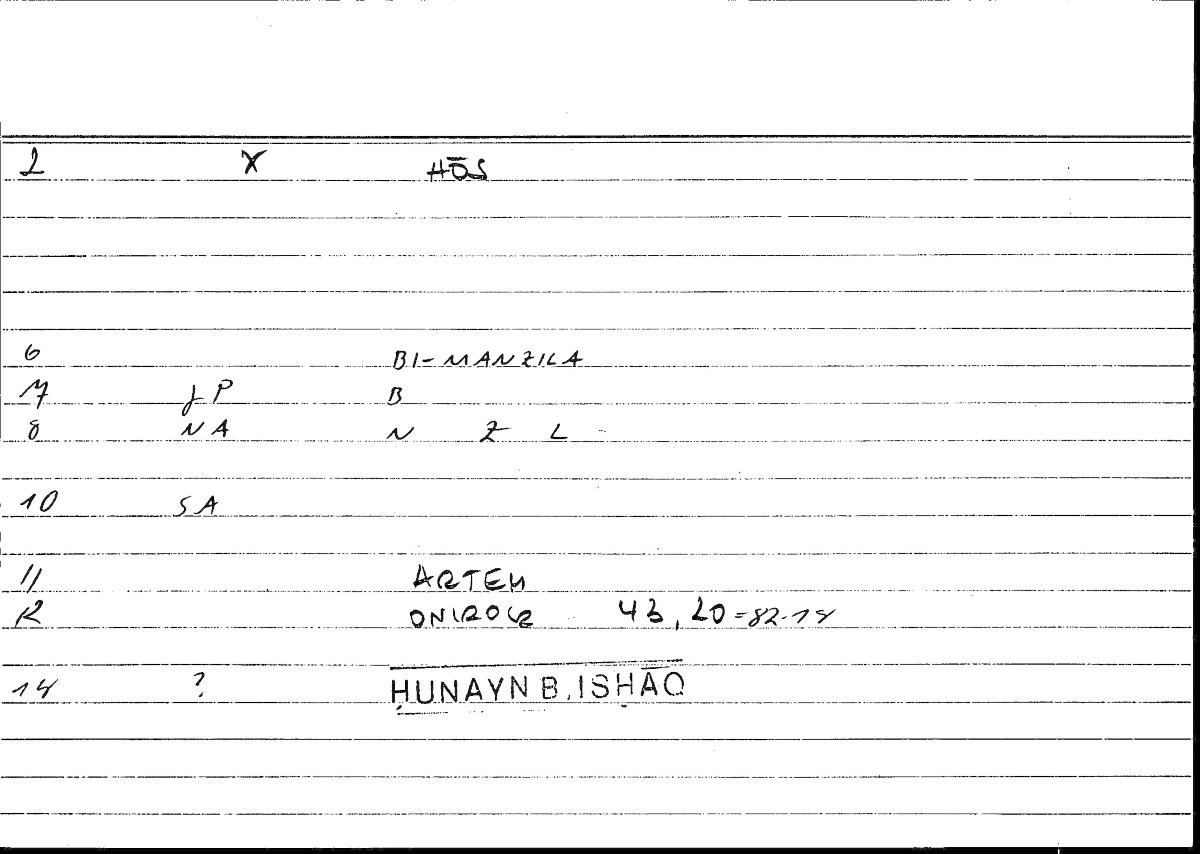 2 X HŌS
6 BI-MANZILA
7 JP B
8 NA N Z L
10 SA
11 ARTEM
12 ONIROCR 43,20=82.14
14 ? ḤUNAYN B. ISḤĀQ